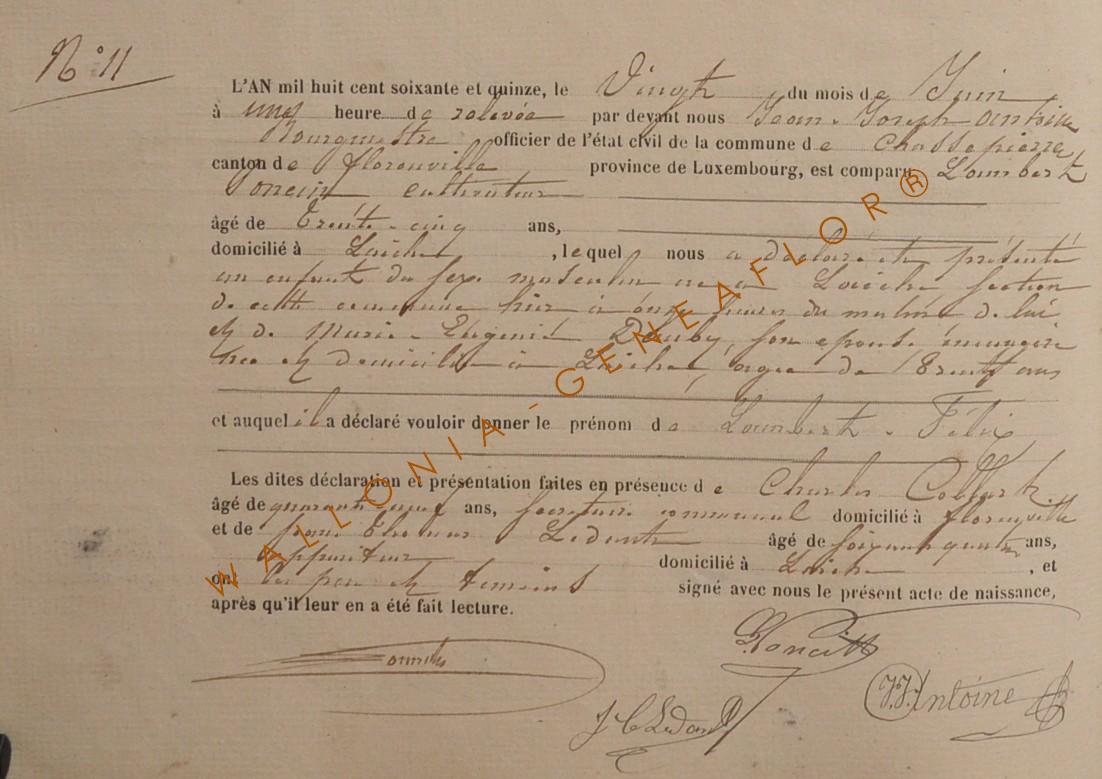 N° 11
L'AN mil huit cent soixante et quinze, le Vingt du mois de Juin
à une heure de relevée par devant nous Jean-Joseph Antoine
Bourgmestre officier de l'état civil de la commune de Chassepierre
canton de Florenville province de Luxembourg, est comparu Lambert
Poncin cultivateur
âgé de Trente-cinq ans,
domicilié à Laiche, lequel nous a déclaré et présenté
un enfant du sexe masculin né à Laiche section
de cette commune hier à onze heures du matin de lui
et de Marie-Eugénie, son épouse ménagère
née et domiciliée à Laiche, âgée de Trente ans
et auquel il a déclaré vouloir donner le prénom de Lambert-Félix
Les dites déclaration et présentation faites en présence de Charles Collart
âgé de quarante neuf ans, secrétaire communal domicilié à Florenville
et de Jean Thomas Ledent âgé de soixante quatre ans,
appariteur domicilié à Laiche, et
ont les père et témoins signé avec nous le présent acte de naissance,
après qu'il leur en a été fait lecture.
J.J. Antoine
WALLONIA-GENEAFLOR®